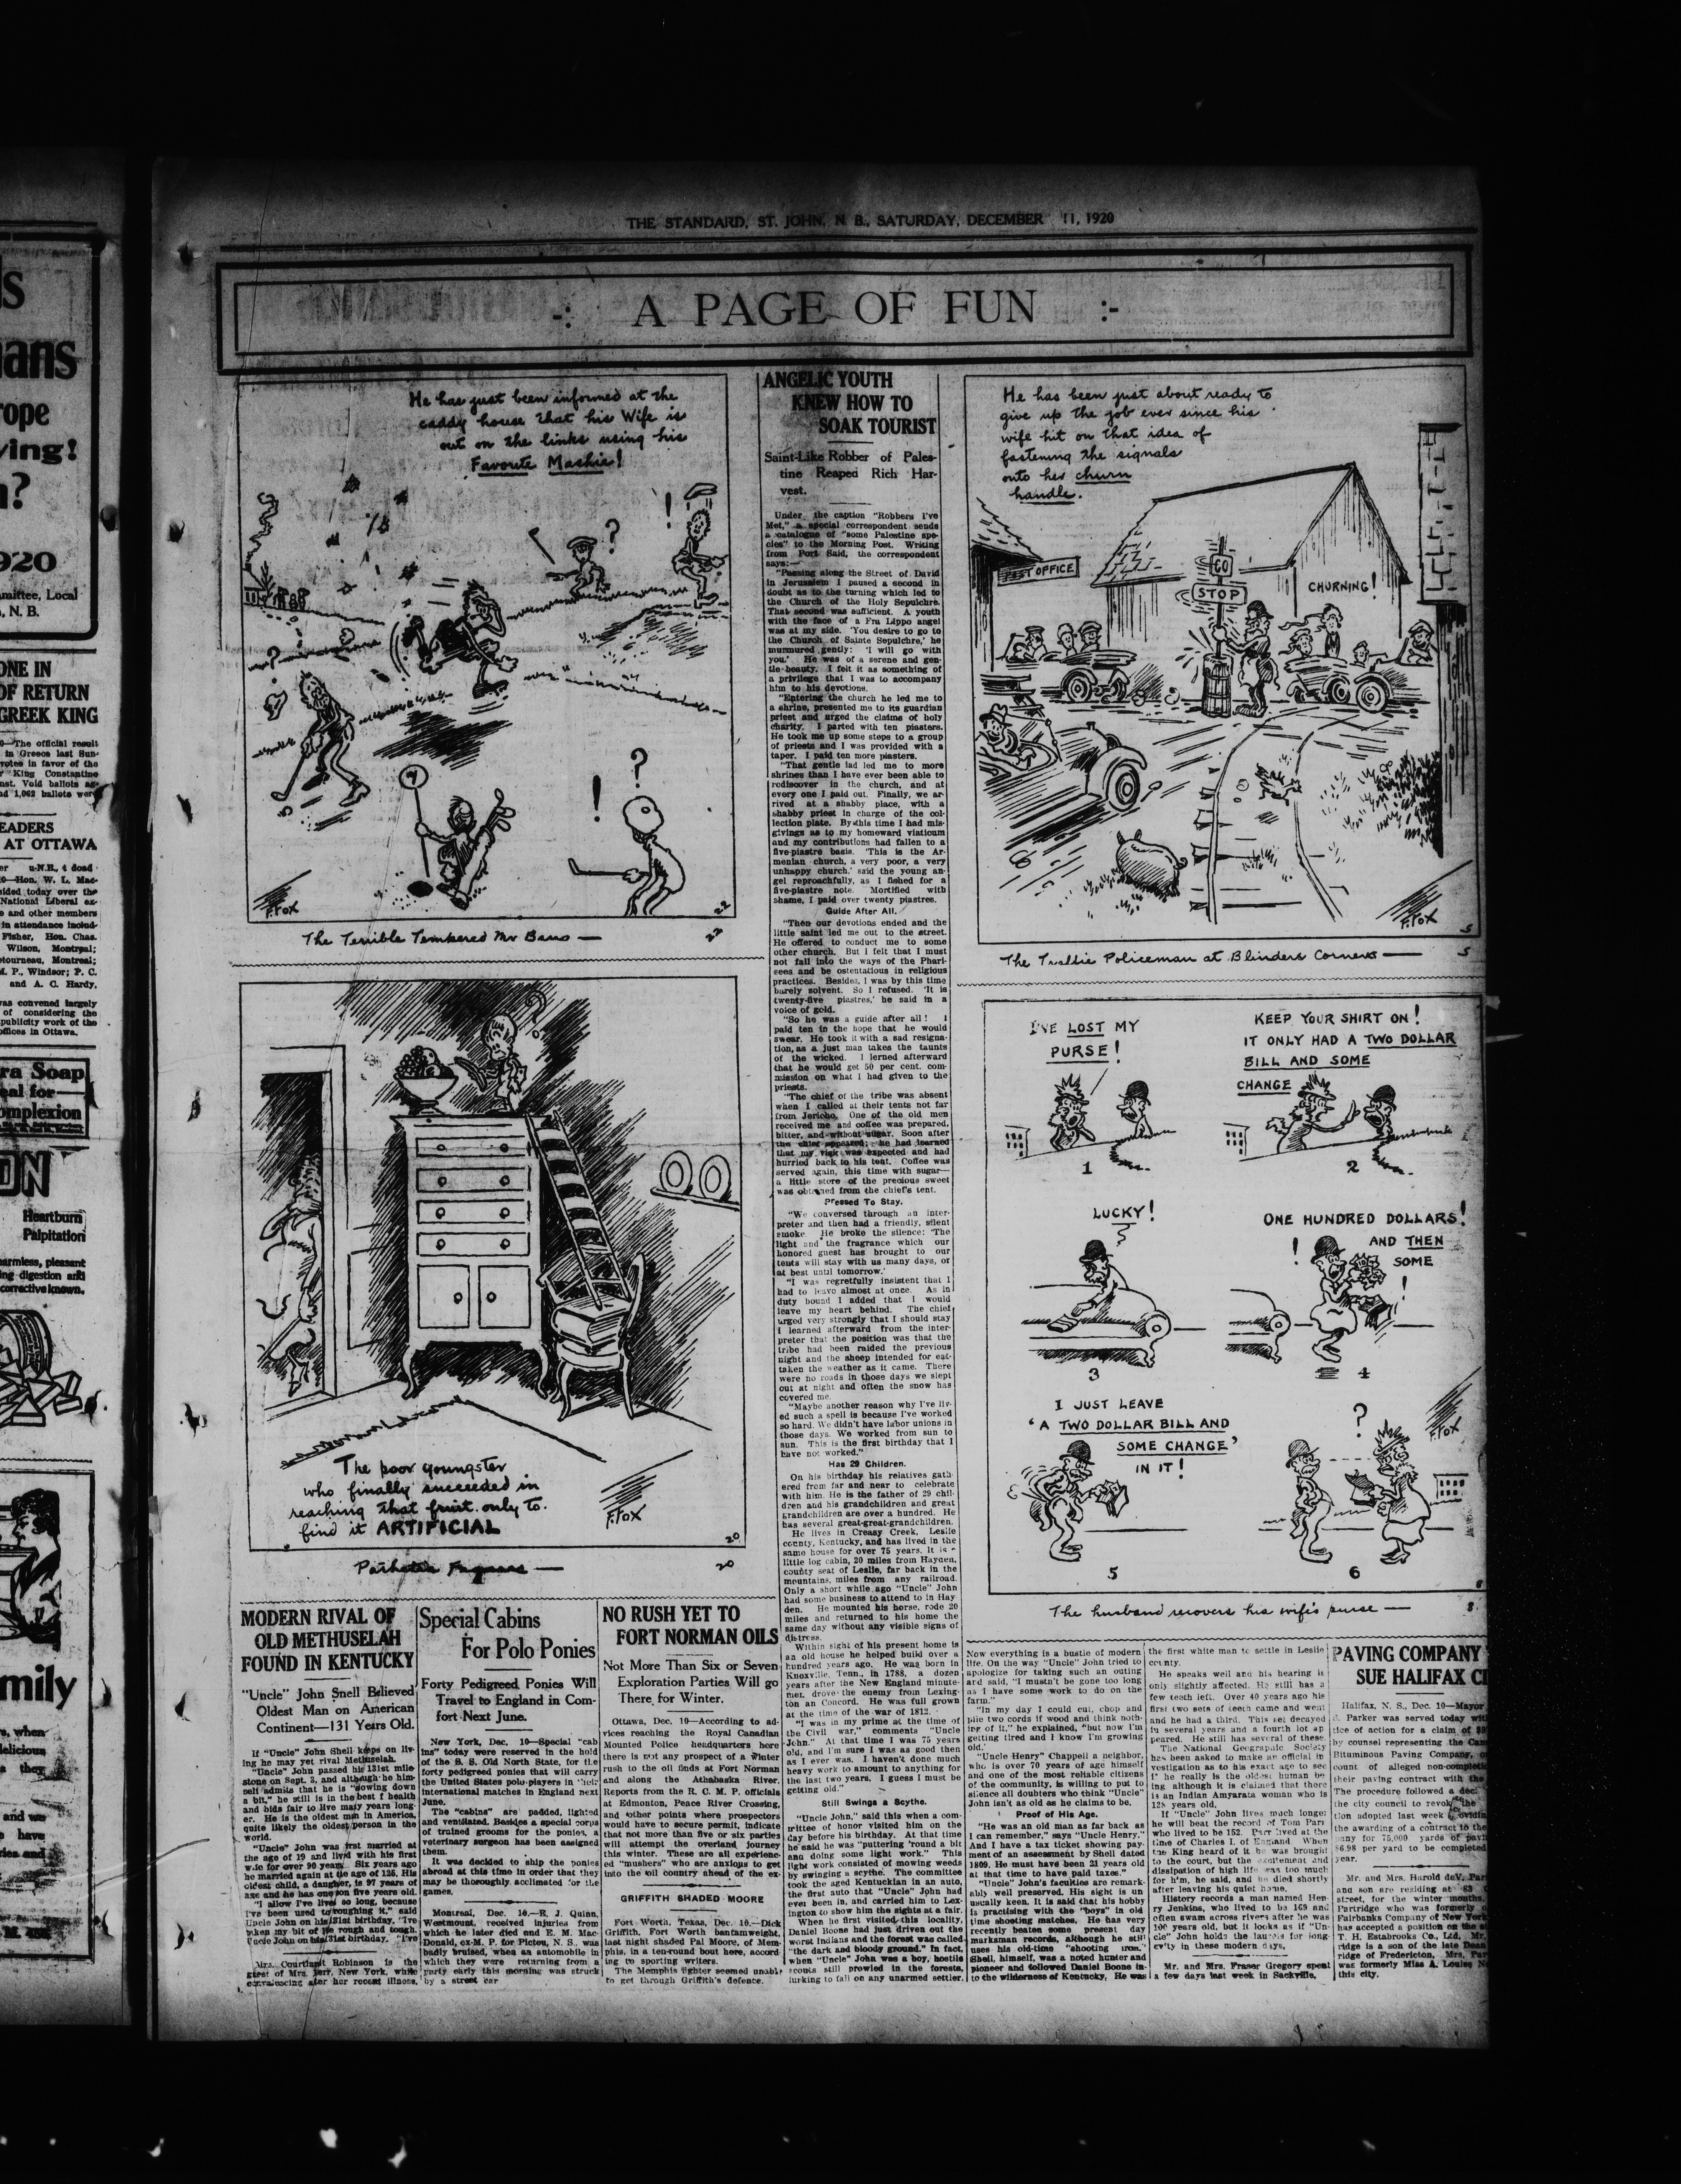 THE STANDARD, ST. JOHN, N. B., SATURDAY, DECEMBER 11, 1920
-: A PAGE OF FUN :-
He has just been informed at the
caddy house that his Wife is
out on the links using his
Favorite Mashie!
?
!
F. Fox
22
The Terrible Tempered Mr Bang —
22
The poor youngster
who finally succeeded in
reaching that fruit only to
find it ARTIFICIAL
F. Fox
20
Pathetic Figures —
20
ANGELIC YOUTH
KNEW HOW TO
SOAK TOURIST
Saint-Like Robber of Pales-
tine Reaped Rich Har-
vest.
Under the caption "Robbers I've
Met," a special correspondent sends
a catalogue of "some Palestine spe-
cies" to the Morning Post. Writing
from Port Said, the correspondent
says:—
"Passing along the Street of David
in Jerusalem I paused a second in
doubt as to the turning which led to
the Church of the Holy Sepulchre.
That second was sufficient. A youth
with the face of a Fra Lippo angel
was at my side. 'You desire to go to
the Church of Sainte Sepulchre,' he
murmured gently: 'I will go with
you.' He was of a serene and gen-
tle beauty. I felt it as something of
a privilege that I was to accompany
him to his devotions.
"Entering the church he led me to
a shrine, presented me to its guardian
priest and urged the claims of holy
charity. I parted with ten piasters.
He took me up some steps to a group
of priests and I was provided with a
taper. I paid ten more piasters.
"That gentle lad led me to more
shrines than I have ever been able to
rediscover in the church, and at
every one I paid out. Finally, we ar-
rived at a shabby place, with a
shabby priest in charge of the col-
lection plate. By this time I had mis-
givings as to my homeward viaticum
and my contributions had fallen to a
five-piastre basis. 'This is the Ar-
menian church, a very poor, a very
unhappy church,' said the young an-
gel reproachfully, as I fished for a
five-piastre note. Mortified with
shame, I paid over twenty piastres.
Guide After All.
"Then our devotions ended and the
little saint led me out to the street.
He offered to conduct me to some
other church. But I felt that I must
not fall into the ways of the Phari-
sees and be ostentatious in religious
practices. Besides, I was by this time
barely solvent. So I refused. 'It is
twenty-five piastres,' he said in a
voice of gold.
"So he was a guide after all! I
paid ten in the hope that he would
swear. He took it with a sad resigna-
tion, as a just man takes the taunts
of the wicked. I lerned afterward
that he would get 50 per cent. com-
mission on what I had given to the
priests.
"The chief of the tribe was absent
when I called at their tents not far
from Jericho. One of the old men
received me and coffee was prepared,
bitter, and without sugar. Soon after
the chief appeared; he had learned
that my visit was expected and had
hurried back to his tent. Coffee was
served again, this time with sugar—
a little store of the precious sweet
was obtained from the chief's tent.
Pressed To Stay.
"We conversed through an inter-
preter and then had a friendly, silent
smoke. He broke the silence: 'The
light and the fragrance which our
honored guest has brought to our
tents will stay with us many days, or
at best until tomorrow.'
"I was regretfully insistent that I
had to leave almost at once. As in
duty bound I added that I would
leave my heart behind. The chief
urged very strongly that I should stay
I learned afterward from the inter-
preter that the position was that the
tribe had been raided the previous
night and the sheep intended for eat-
taken the weather as it came. There
were no roads in those days we slept
out at night and often the snow has
covered me.
"Maybe another reason why I've liv-
ed such a spell is because I've worked
so hard. We didn't have labor unions in
those days. We worked from sun to
sun. This is the first birthday that I
have not worked."
Has 29 Children.
On his birthday his relatives gath-
ered from far and near to celebrate
with him. He is the father of 29 chil-
dren and his grandchildren and great
grandchildren are over a hundred. He
has several great-great-grandchildren.
He lives in Creasy Creek, Leslie
county, Kentucky, and has lived in the
same house for over 75 years. It is a
little log cabin, 20 miles from Hayden,
county seat of Leslie, far back in the
mountains, miles from any railroad.
Only a short while ago "Uncle" John
had some business to attend to in Hay
den. He mounted his horse, rode 20
miles and returned to his home the
same day without any visible signs of
distress.
Within sight of his present home is
an old house he helped build over a
hundred years ago. He was born in
Knoxville, Tenn., in 1788, a dozen
years after the New England minute-
men drove the enemy from Lexing-
ton an Concord. He was full grown
at the time of the war of 1812.
"I was in my prime at the time of
the Civil war," comments "Uncle
John." At that time I was 75 years
old, and I'm sure I was as good then
as I ever was. I haven't done much
heavy work to amount to anything for
the last two years, I guess I must be
getting old."
Still Swings a Scythe.
"Uncle John," said this when a com-
mittee of honor visited him on the
day before his birthday. At that time
he said he was "puttering 'round a bit
and doing some light work." This
light work consisted of mowing weeds
by swinging a scythe. The committee
took the aged Kentuckian in an auto,
the first auto that "Uncle" John had
ever been in, and carried him to Lex-
ington to show him the sights at a fair.
When he first visited this locality,
Daniel Boone had just driven out the
worst Indians and the forest was called
"the dark and bloody ground." In fact,
when "Uncle" John was a boy, hostile
scouts still prowled in the forests,
lurking to fall on any unarmed settler.
He has been just about ready to
give up the job ever since his
wife hit on that idea of
fastening the signals
onto her churn
handle.
POST OFFICE
GO
STOP
CHURNING!
F. Fox
5
The Traffic Policeman at Blinders Corners —
5
I'VE LOST MY
PURSE!
1
KEEP YOUR SHIRT ON!
IT ONLY HAD A TWO DOLLAR
BILL AND SOME
CHANGE
2
LUCKY!
3
ONE HUNDRED DOLLARS!
AND THEN
SOME
!
4
I JUST LEAVE
'A TWO DOLLAR BILL AND
SOME CHANGE'
IN IT!
5
?
F. Fox
6
The husband recovers his wife's purse —
8
MODERN RIVAL OF
OLD METHUSELAH
FOUND IN KENTUCKY
"Uncle" John Snell Believed
Oldest Man on American
Continent—131 Years Old.
If "Uncle" John Shell keeps on liv-
ing he may yet rival Methuselah.
"Uncle" John passed his 131st mile-
stone on Sept. 3, and although he him-
self admits that he is "slowing down
a bit," he still is in the best f health
and bids fair to live many years long-
er. He is the oldest man in America,
quite likely the oldest person in the
world.
"Uncle" John was first married at
the age of 19 and lived with his first
wife for over 90 years. Six years ago
he married again at the age of 125. His
oldest child, a daughter, is 97 years of
age and he has one son five years old.
"I allow I've lived so long, because
I've been used to roughing it," said
Uncle John on his 131st birthday, "I've
taken my bit of the rough and tough,
Uncle John on his 131st birthday. "I've
Mrs. Courtlant Robinson is the
guest of Mrs. Tarr, New York, while
convalescing after her recent illness.
Special Cabins
For Polo Ponies
Forty Pedigreed Ponies Will
Travel to England in Com-
fort Next June.
New York, Dec. 10—Special "cab
ins" today were reserved in the hold
of the S. S. Old North State, for the
forty pedigreed ponies that will carry
the United States polo players in their
international matches in England next
June.
The "cabins" are padded, lighted
and ventilated. Besides a special corps
of trained grooms for the ponies, a
veterinary surgeon has been assigned
them.
It was decided to ship the ponies
abroad at this time in order that they
may be thoroughly acclimated for the
games.
Montreal, Dec. 10.—R. J. Quinn,
Westmount, received injuries from
which he later died and E. M. Mac-
Donald, ex-M. P. for Pictou, N. S., was
badly bruised, when an automobile in
which they were returning from a
party early this morning was struck
by a street car
NO RUSH YET TO
FORT NORMAN OILS
Not More Than Six or Seven
Exploration Parties Will go
There for Winter.
Ottawa, Dec. 10—According to ad-
vices reaching the Royal Canadian
Mounted Police headquarters here
there is not any prospect of a winter
rush to the oil finds at Fort Norman
and along the Athabaska River.
Reports from the R. C. M. P. officials
at Edmonton, Peace River Crossing,
and other points where prospectors
would have to secure permit, indicate
that not more than five or six parties
will attempt the overland journey
this winter. These are all experienc-
ed "mushers" who are anxious to get
into the oil country ahead of the ex-
GRIFFITH SHADED MOORE
Fort Worth, Texas, Dec. 10.—Dick
Griffith, Fort Worth bantamweight,
last night shaded Pal Moore, of Mem-
phis, in a ten-round bout here, accord-
ing to sporting writers.
The Memphis fighter seemed unable
to get through Griffith's defence.
Now everything is a bustle of modern
life. On the way "Uncle" John tried to
apologize for taking such an outing
and said, "I mustn't be gone too long
as I have some work to do on the
farm."
"In my day I could cut, chop and
pile two cords if wood and think noth-
ing of it," he explained, "but now I'm
getting tired and I know I'm growing
old."
"Uncle Henry" Chappell a neighbor,
who is over 70 years of age himself
and one of the most reliable citizens
of the community, is willing to put to
silence all doubters who think "Uncle"
John isn't as old as he claims to be.
Proof of His Age.
"He was an old man as far back as
I can remember," says "Uncle Henry."
And I have a tax ticket showing pay-
ment of an assessment by Shell dated
1809. He must have been 21 years old
at that time to have paid taxes."
"Uncle" John's faculties are remark-
ably well preserved. His sight is un
usually keen. It is said that his hobby
is practising with the "boys" in old
time shooting matches. He has very
recently beaten some present day
marksman records, although he still
uses his old-time "shooting iron."
Shell, himself, was a noted hunter and
pioneer and followed Daniel Boone in-
to the wilderness of Kentucky. He was
the first white man to settle in Leslie
county.
He speaks well and his hearing is
only slightly affected. He still has a
few teeth left. Over 40 years ago his
first two sets of teeth came and went
and he had a third. This set decayed
in several years and a fourth lot ap
peared. He still has several of these.
The National Geographic Society
has been asked to make an official in
vestigation as to his exact age to see
if he really is the oldest human be
ing although it is claimed that there
is an Indian Amyrata woman who is
128 years old.
If "Uncle" John lives much longer
he will beat the record of Tom Parr
who lived to be 152. Parr lived at the
time of Charles I. of England. When
the King heard of it he was brought
to the court, but the excitement and
dissipation of high life was too much
for h'm, he said, and he died shortly
after leaving his quiet home.
History records a man named Hen-
ry Jenkins, who lived to be 169 and
often swam across rivers after he was
100 years old, but it looks as if "Un-
cle" John holds the laurels for long-
evity in these modern days.
Mr. and Mrs. Fraser Gregory spent
a few days last week in Sackville.
PAVING COMPANY
SUE HALIFAX
Halifax, N. S., Dec. 10—Mayor
Parker was served today
tice of action for a claim of
by counsel representing the
Bituminous Paving Company,
count of alleged
their paving contract with the
The procedure followed a
the city council to revoke the
tion adopted last week
the awarding of a contract to the
pany for 75,000 yards of
$6.98 per yard to be completed
year.
Mr. and Mrs. Harold deV.
and son are residing at 83
street, for the winter months.
Partridge who was formerly
Fairbanks Company of New York
has accepted a position on the
T. H. Estabrooks Co., Ltd. Mr.
ridge is a son of the late Dean
ridge of Fredericton, Mrs.
was formerly Miss A. Louise
this city.
ONE IN
OF RETURN
GREEK KING
The official result
in Greece last Sun-
votes in favor of the
King Constantine
Void ballots
1,062 ballots were
EADERS
AT OTTAWA
Hon. W. L. Mac-
over the
National Liberal
and other members
in attendance
Fisher, Hon. Chas.
Wilson, Montreal;
Montreal;
M. P., Windsor; P. C.
and A. C. Hardy,
was convened largely
of considering the
publicity work of the
offices in Ottawa.
Soap
for
Complexion
Heartburn
Palpitation
pleasant
digestion and
corrective known.